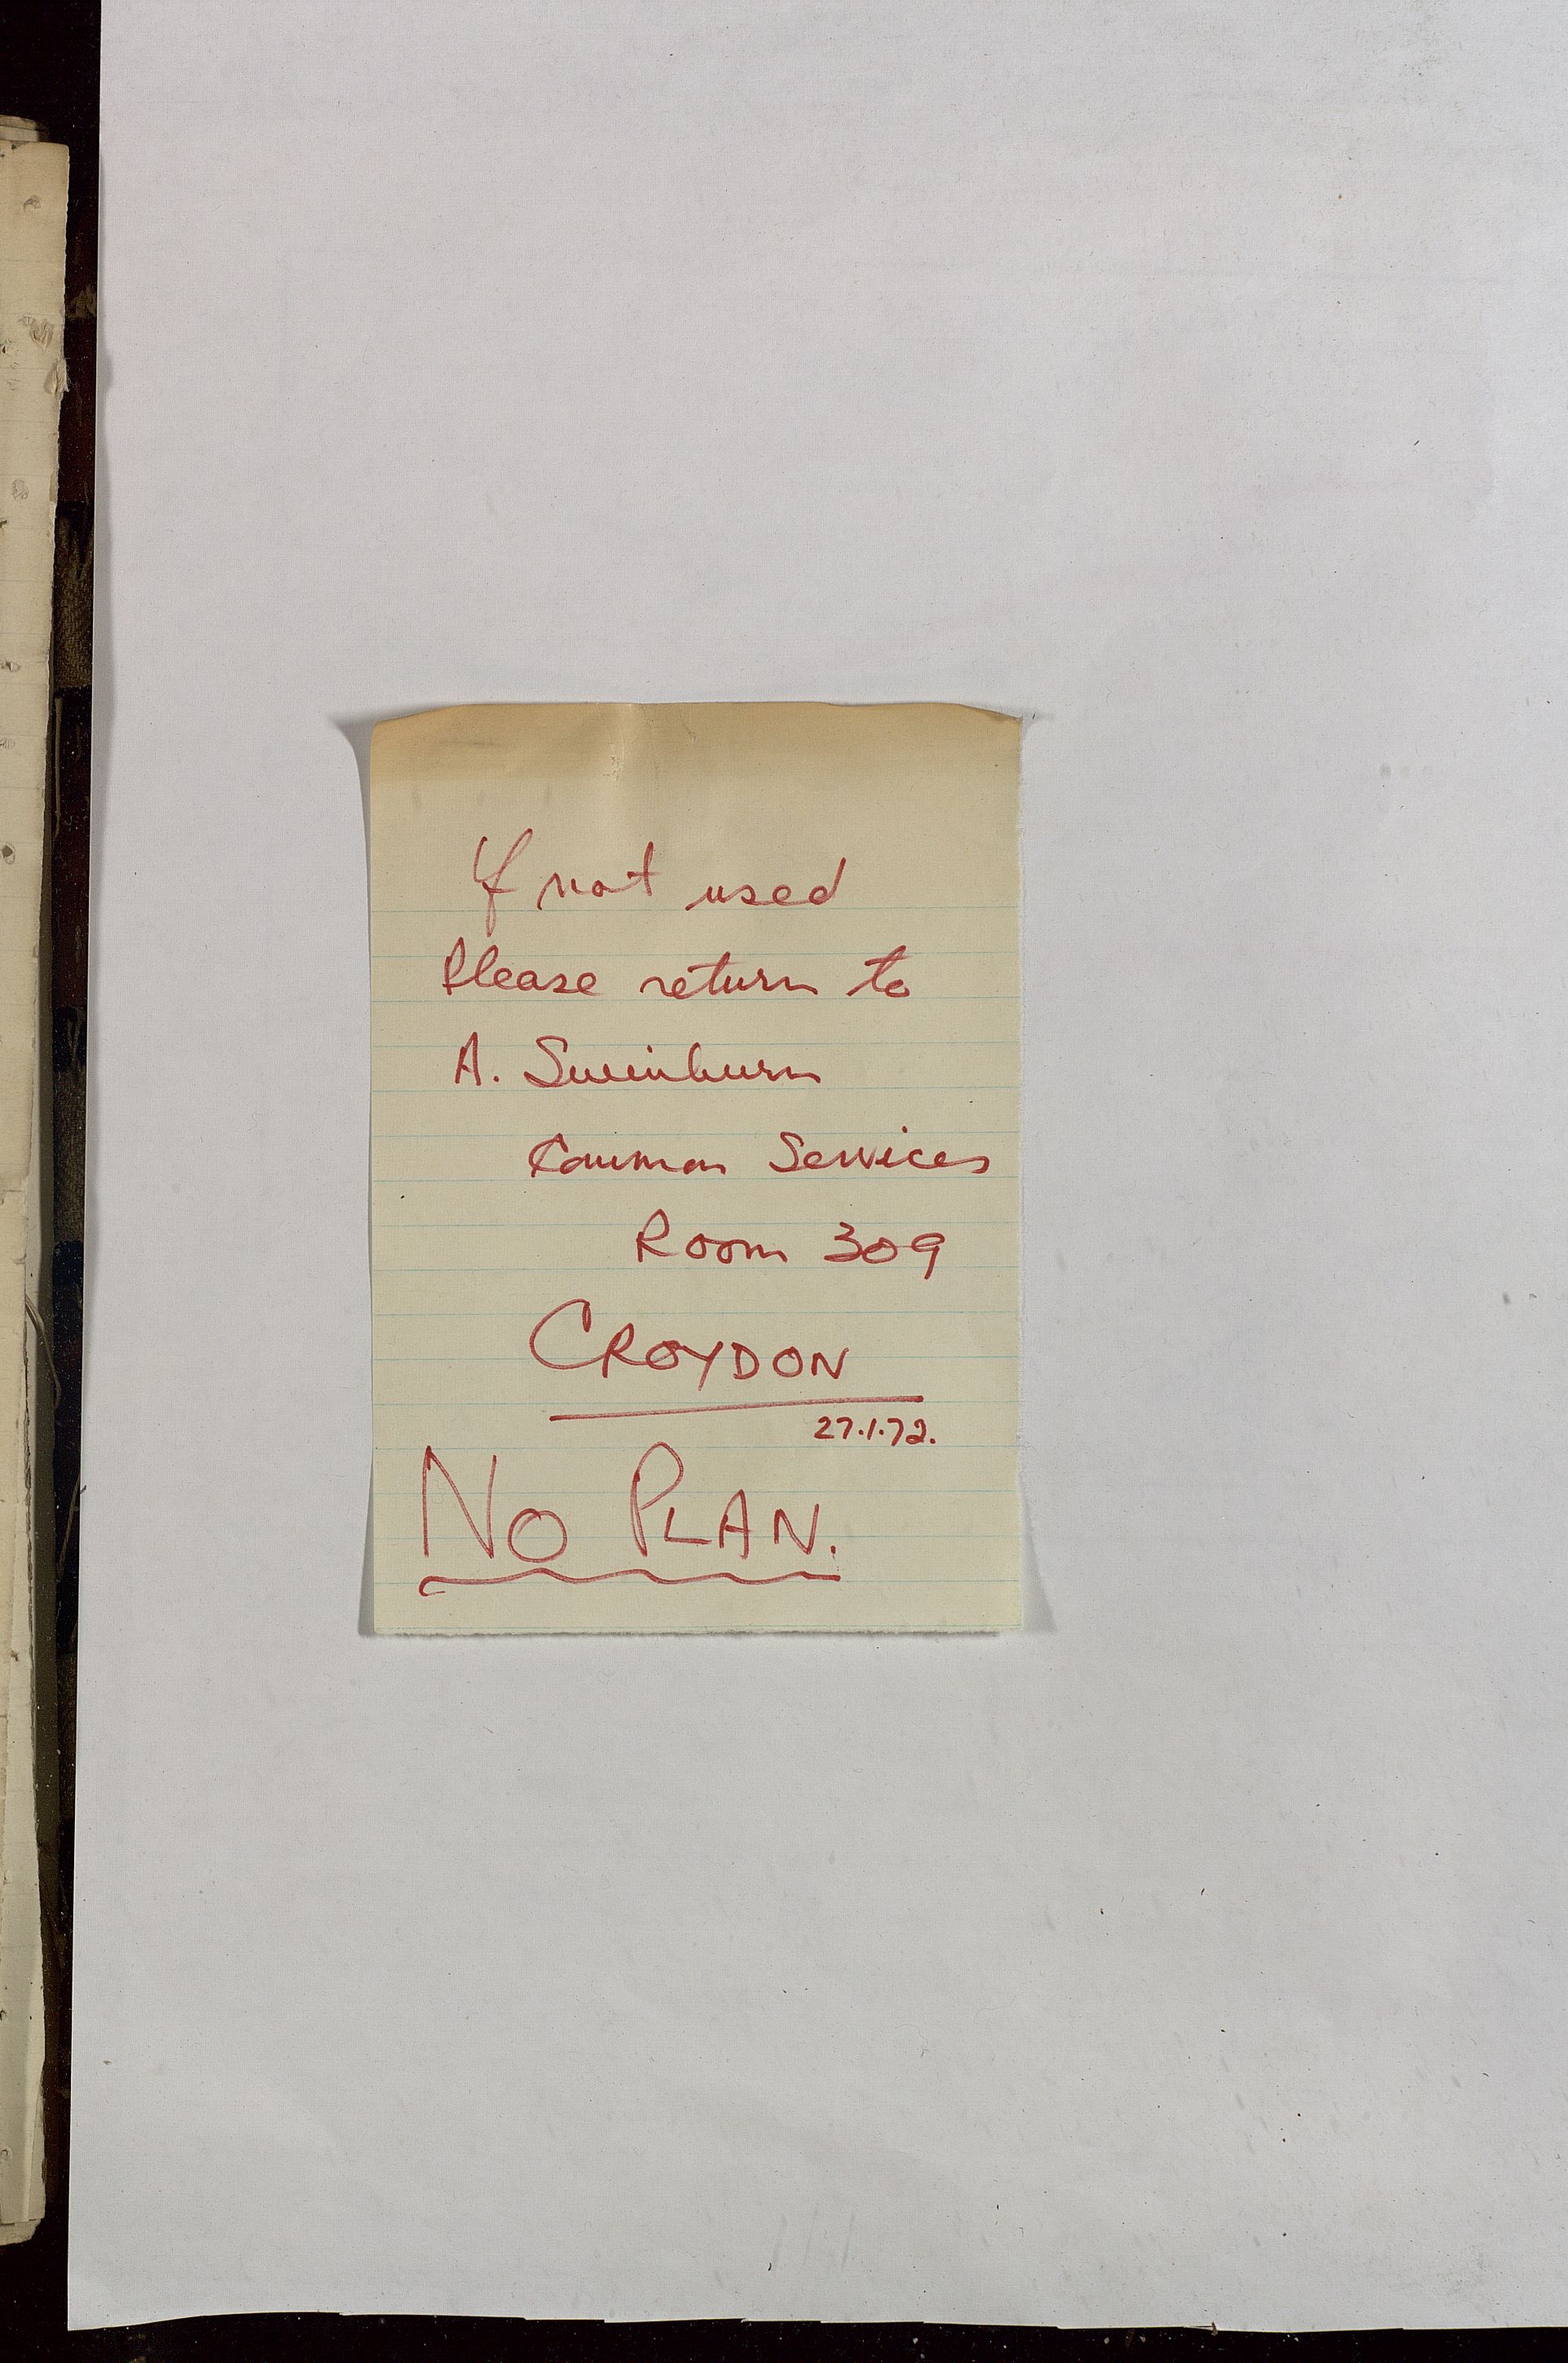 If not used
Please return to
A. Swinburn
Common Services
Room 309
CROYDON
27.1.72.
NO PLAN.